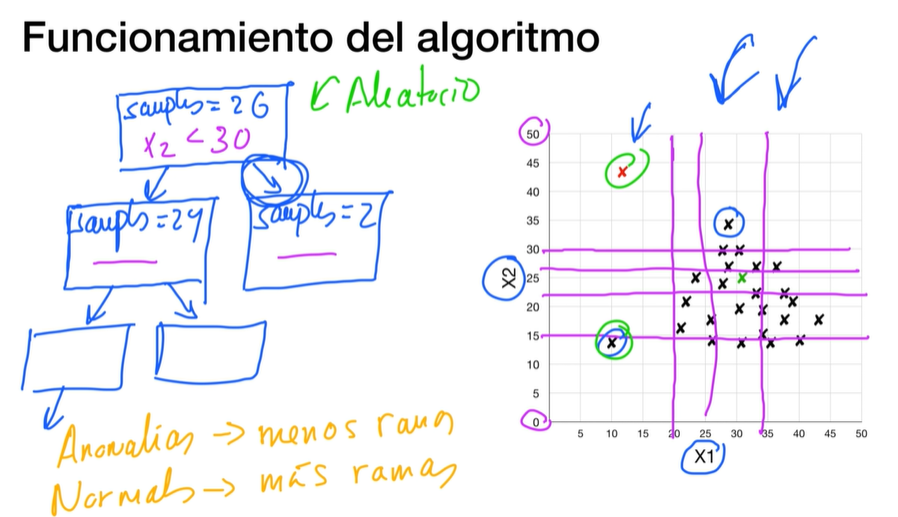 Funcionamiento del algoritmo
samples = 26
X2 < 30
Aleatorio
samples = 24
samples = 2
Anomalías → menos ramas
Normales → más ramas
X2
50
45
40
35
30
25
20
15
10
5
0
5 10 15 20 25 30 35 40 45 50
X1